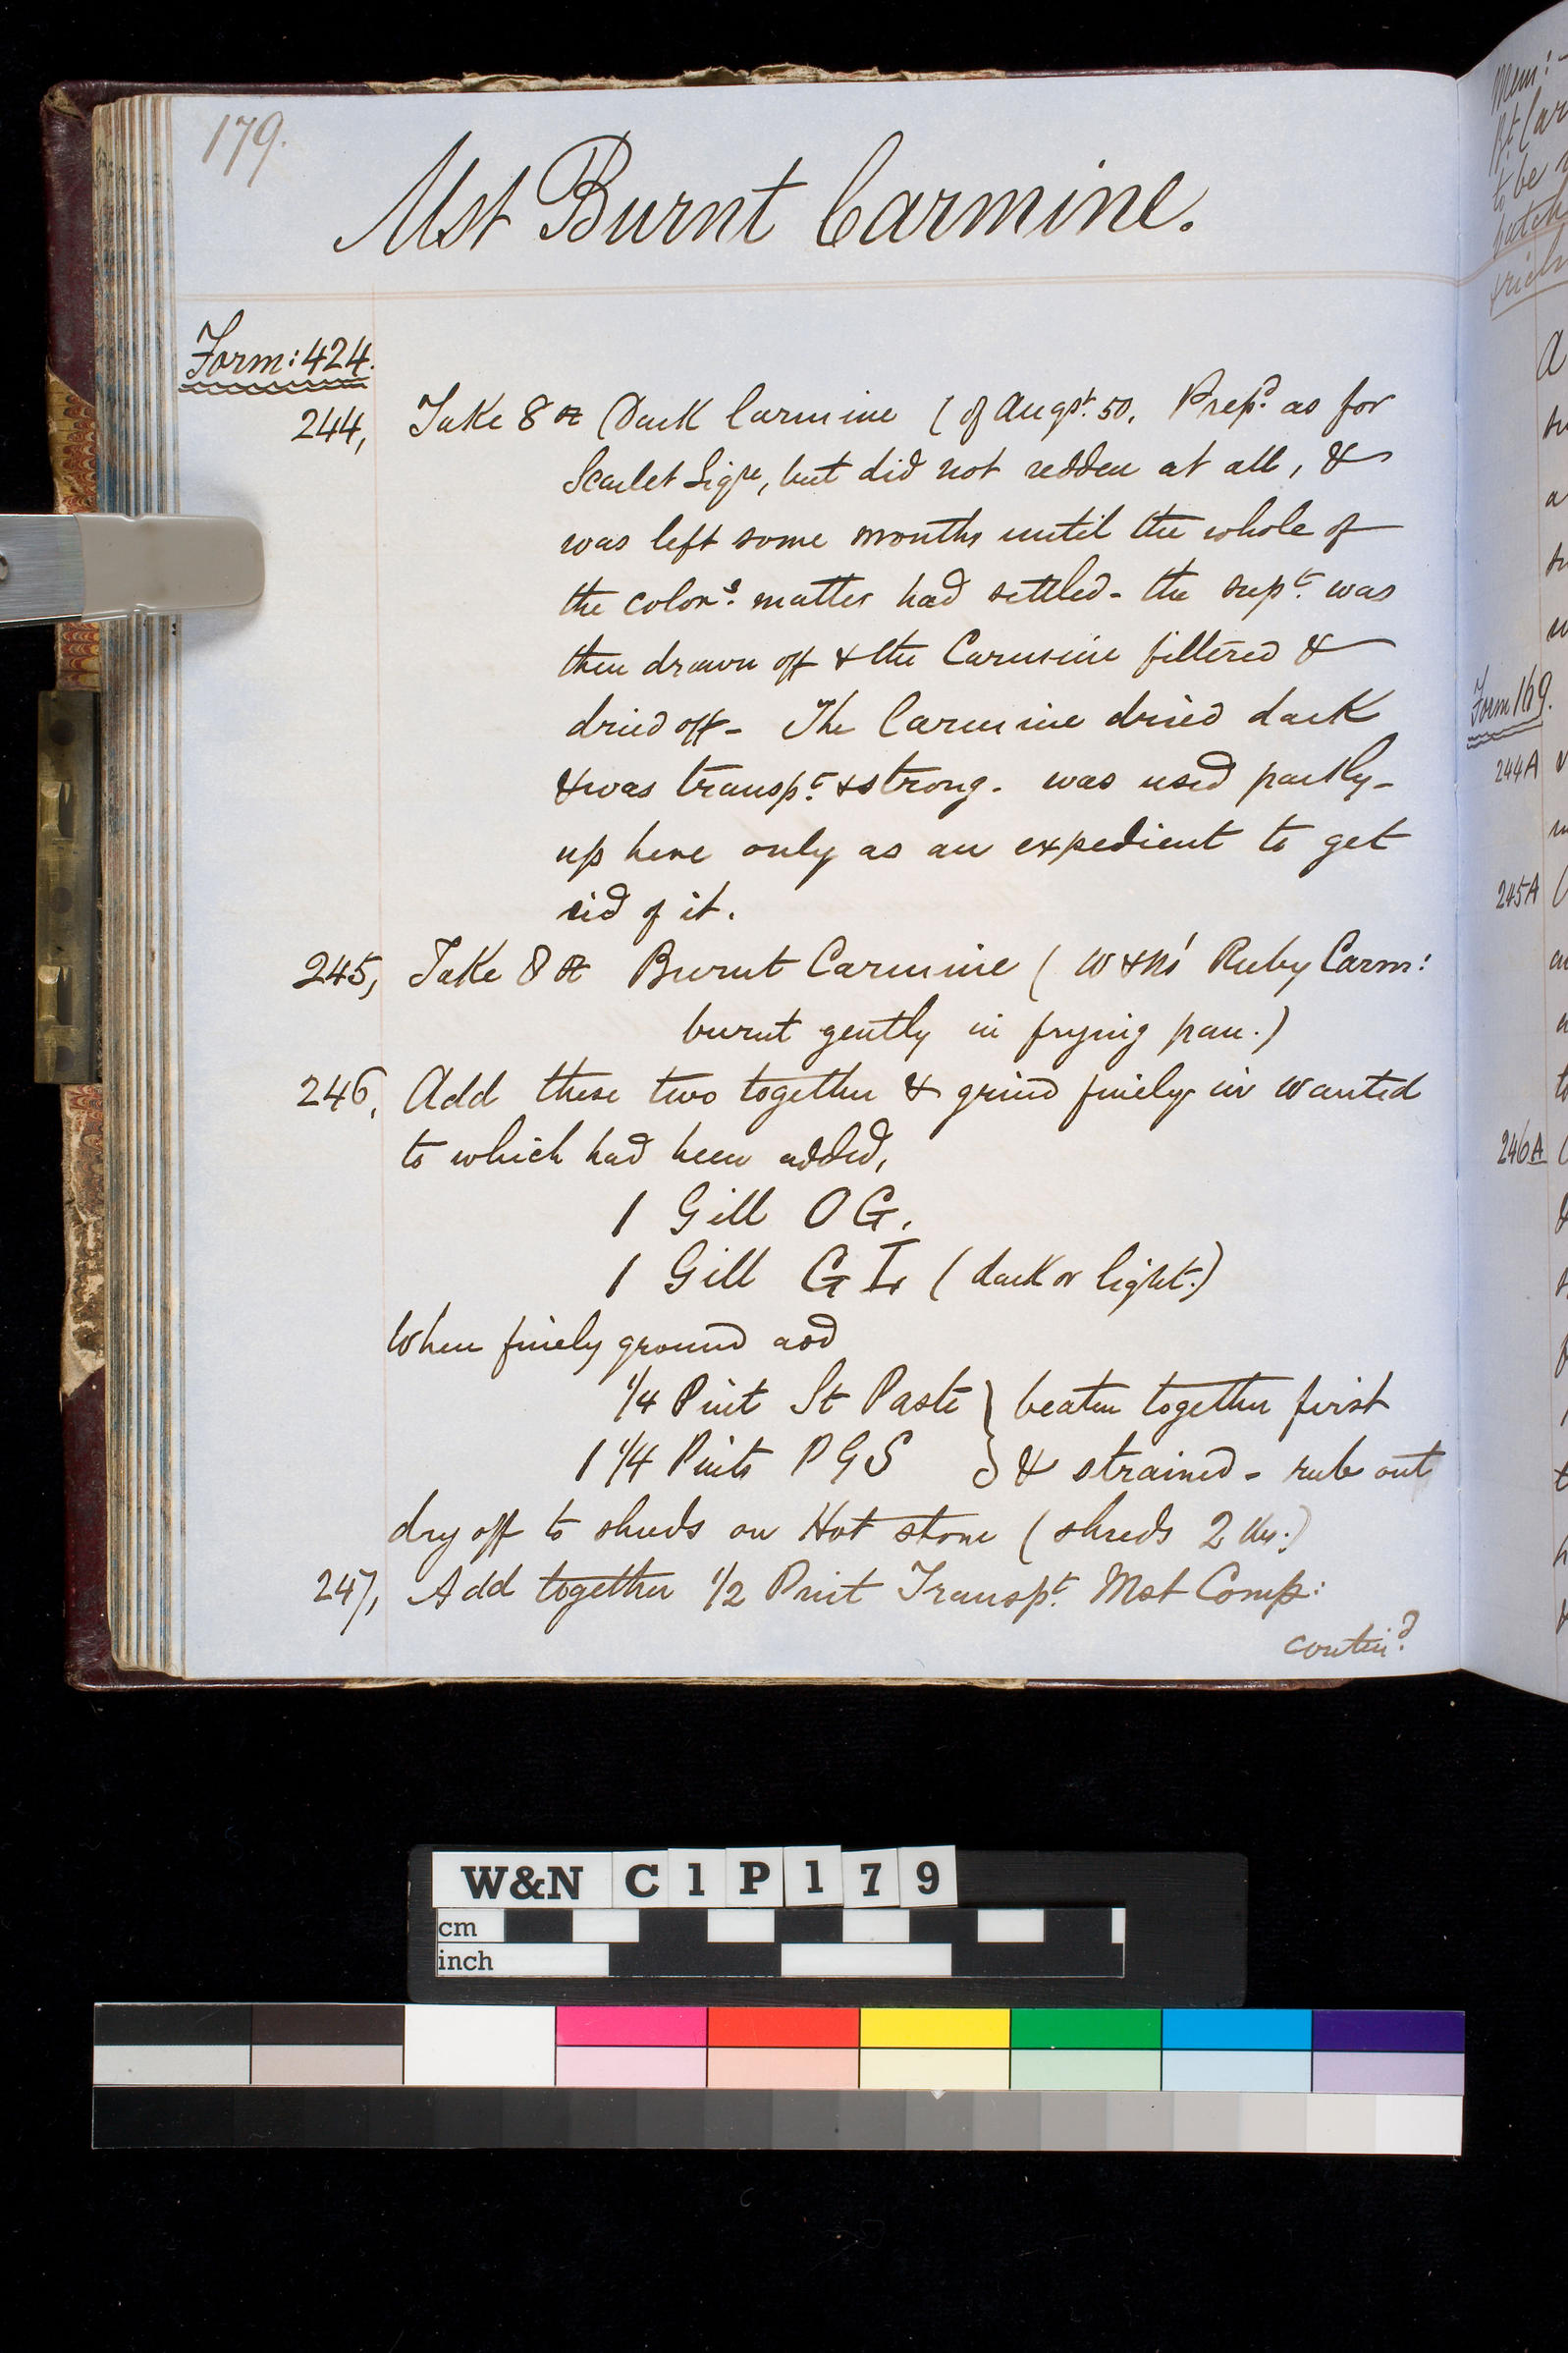 179.
Mst Burnt Carmine.
Form: 424.
244, Take 8 oz Dark Carmine ( of Augst. 50. Prepd. as for
Scarlet Liqre, but did not redden at all, &
was left some months until the whole of
the colorg. matter had settled - the supt. was
then drawn off & the Carmine filtered &
dried off - The Carmine dried dark
& was transpt. & strong. was used partly -
up here only as an expedient to get
rid of it.
245, Take 8 oz Burnt Carmine ( W & Ns' Ruby Carm:
burnt gently in frying pan.)
246, Add these two together & grind finely in Wanted
to which had been added,
1 Gill OG.
1 Gill G I (dark or light.)
When finely ground add
1/4 Pint St Paste } beaten together first
1 1/4 Pints P G S } & strained - rub out
dry off to shreds on Hot stone ( shreds 2 lbs:)
247, Add together 1/2 Pint Transpt. Mst Comp:
contind.
Mem:
to be
Form 169.
244A
245A
246A
W&N C1P179
cm
inch